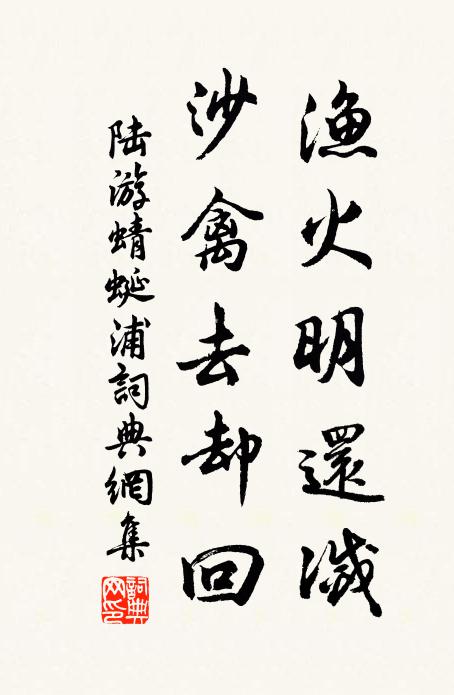 漁火明還滅
沙禽去却回
陸游蜻蜒浦詞典網集
詞典網印